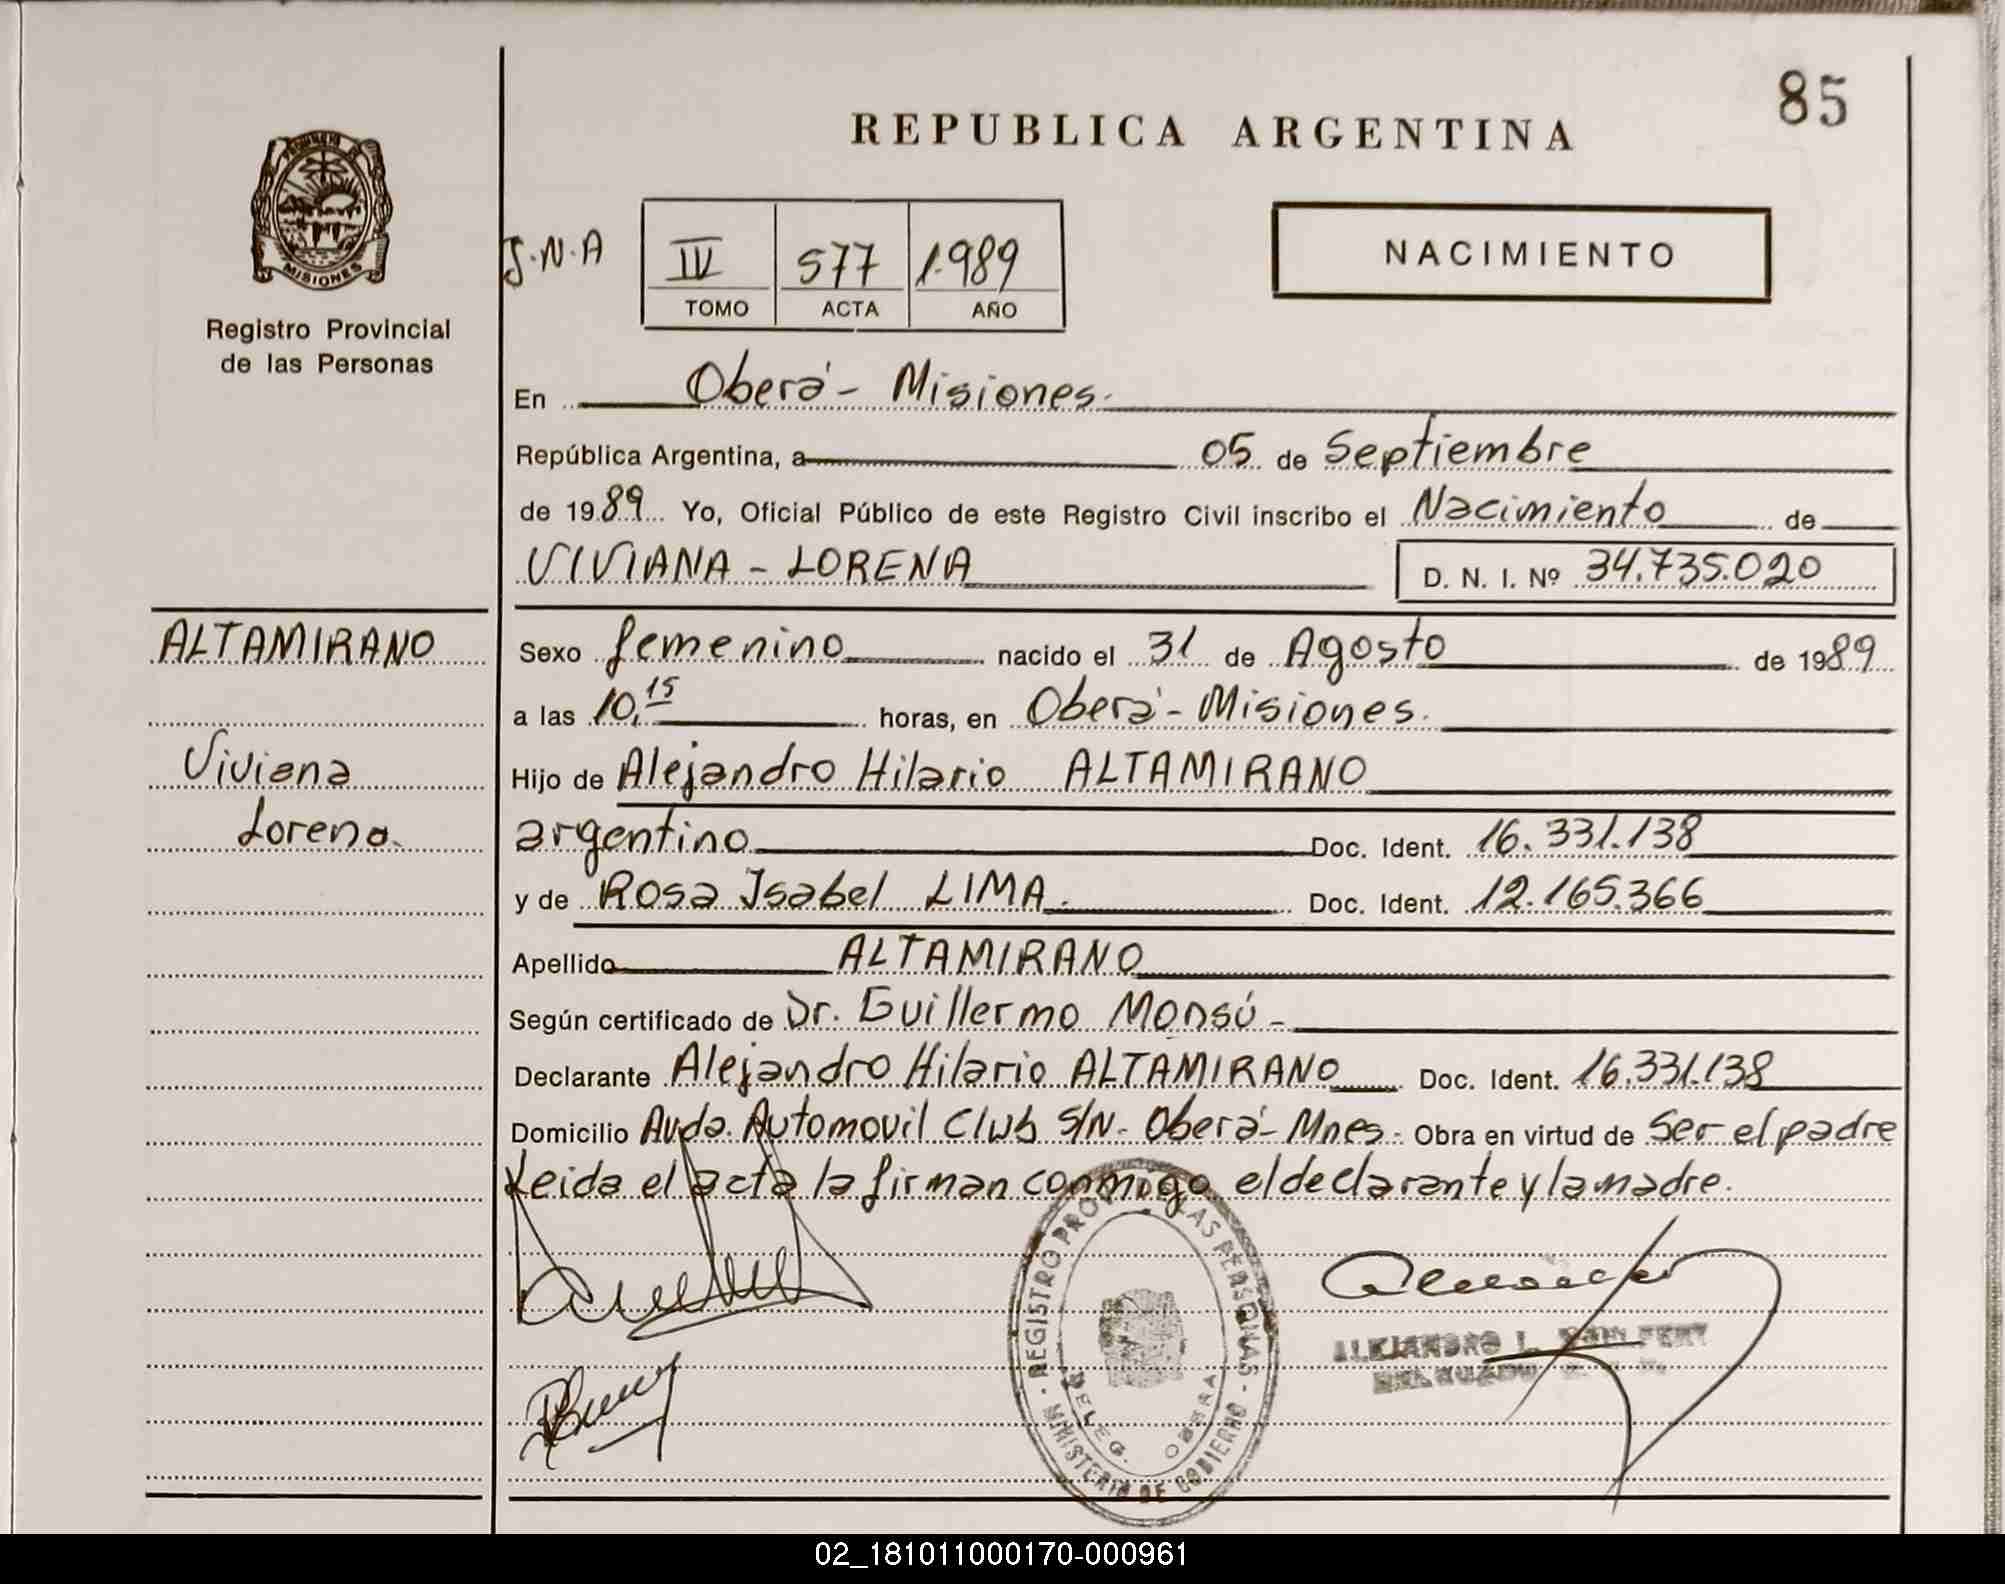 85
REPUBLICA ARGENTINA
MISIONES
Registro Provincial
de las Personas
J.N.A
IV 577 1.989
TOMO ACTA AÑO
NACIMIENTO
En Oberá - Misiones.
República Argentina, a 05 de Septiembre
de 1989 Yo, Oficial Público de este Registro Civil inscribo el Nacimiento de
VIVIANA - LORENA D. N. I. Nº 34.735.020
ALTAMIRANO
Viviana
Lorena.
Sexo femenino nacido el 31 de Agosto de 1989
a las 10,15 horas, en Oberá - Misiones.
Hijo de Alejandro Hilario ALTAMIRANO
argentino Doc. Ident. 16.331.138
y de Rosa Isabel LIMA. Doc. Ident. 12.165.366
Apellido ALTAMIRANO
Según certificado de Dr. Guillermo Monsú -
Declarante Alejandro Hilario ALTAMIRANO Doc. Ident. 16.331.138
Domicilio Avda. Automovil Club S/N - Oberá - Mnes - Obra en virtud de Ser el padre
Leida el acta la firman conmigo el declarante y la madre.
REGISTRO PROV LAS PERSONAS
DELEG. OBERA
MINISTERIO DE GOBIERNO
ALEJANDRO L.
02_181011000170-000961